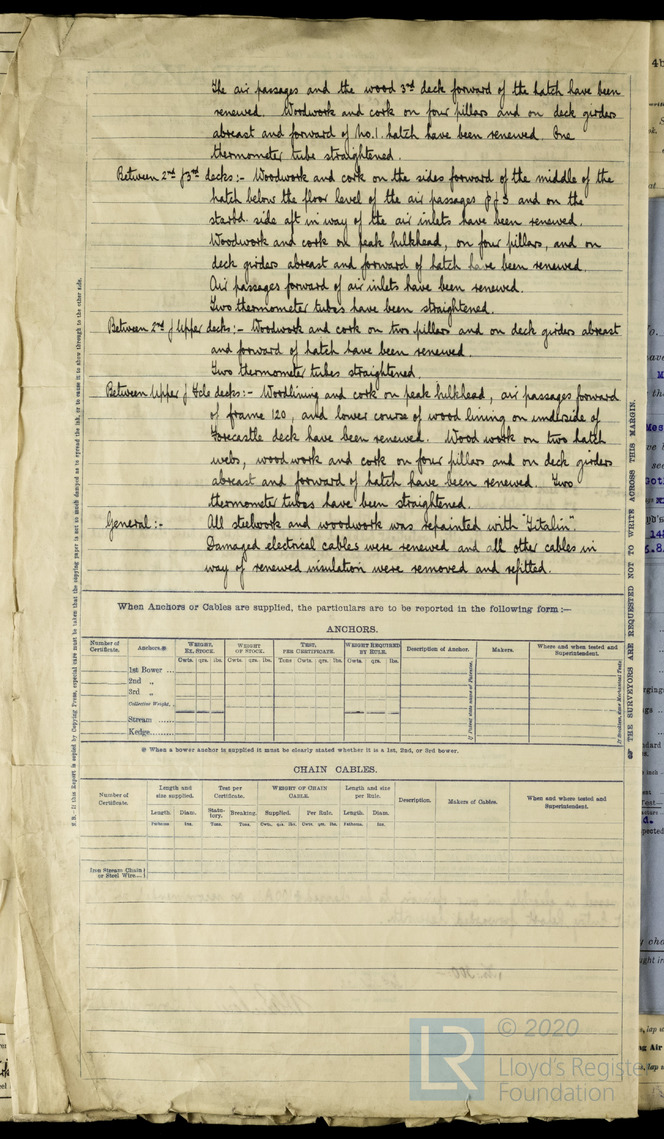 The air passages and the wood 3rd deck forward of the hatch have been
renewed. Woodwork and cork on four pillars and on deck girders
abreast and forward of No.1. hatch have been renewed. One
thermometer tube straightened.
Between 2nd & 3rd decks:- Woodwork and cork on the sides forward of the middle of the
hatch below the floor level of the air passages P & S and on the
starbd. side aft in way of the air inlets have been renewed.
Woodwork and cork on peak bulkhead, on four pillars, and on
deck girders abreast and forward of hatch have been renewed.
Air passages forward of air inlets have been renewed.
Two thermometer tubes have been straightened.
Between 2nd & Upper decks:- Woodwork and cork on two pillars and on deck girders abreast
and forward of hatch have been renewed.
Two thermometer tubes straightened.
Between Upper & Hole decks:- Woodlining and cork on peak bulkhead, air passages forward
of frame 120, and lower course of wood lining on underside of
forecastle deck have been renewed. Wood work on two hatch
webs, woodwork and cork on four pillars and on deck girders
abreast and forward of hatch have been renewed. Two
thermometer tubes have been straightened.
General:- All steelwork and woodwork was repainted with "Zitalin".
Damaged electrical cables were renewed and all other cables in
way of renewed insulation were removed and refitted.
When Anchors or Cables are supplied, the particulars are to be reported in the following form:—
ANCHORS.
Number of Certificate. Anchors.* WEIGHT, EX. STOCK. WEIGHT OF STOCK. TEST, PER CERTIFICATE. WEIGHT REQUIRED BY RULE. Description of Anchor. Makers. Where and when tested and Superintendent.
Cwts. qrs. lbs. Cwts. qrs. lbs. Tons Cwts. qrs. lbs. Cwts. qrs. lbs.
1st Bower ...
2nd „
3rd „
Collective Weight.
Stream ......
Kedge......
* When a bower anchor is supplied it must be clearly stated whether it is a 1st, 2nd, or 3rd bower.
CHAIN CABLES.
Number of Certificate. Length and size supplied. Test per Certificate. WEIGHT OF CHAIN CABLE. Length and size per Rule. Description. Makers of Cables. When and where tested and Superintendent.
Length. Diam. Statutory. Breaking. Supplied. Per Rule. Length. Diam.
Fathoms. Ins. Tons. Tons. Cwts. qrs. lbs. Cwts. qrs. lbs. Fathoms. Ins.
Iron Stream Chain or Steel Wire...
N.B.-If this Report is copied by Copying Press, especial care must be taken that the copying paper is not so much damped as to spread the ink, or to cause it to show through to the other side.
THE SURVEYORS ARE REQUESTED NOT TO WRITE ACROSS THIS MARGIN.
© 2020
LR Lloyd's Register
Foundation